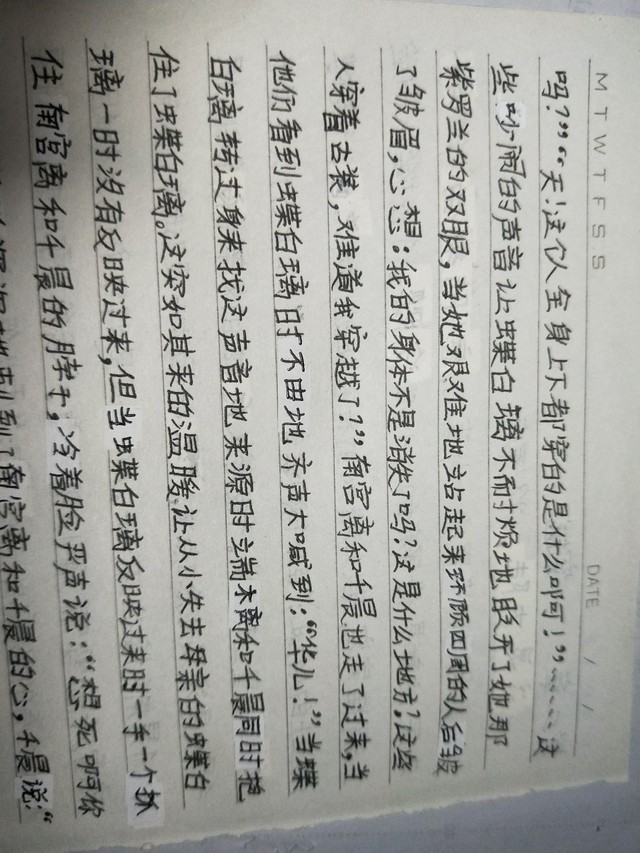 M T W T F S S
DATE / /
吗？”“天！这个人全身上下都穿的是什么啊！”……这
些吵闹的声音让蝶白璃不耐烦地睁开了她那
紫罗兰的双眼，当她艰难地站起来环顾四周的人后皱
了皱眉，心想：我的身体不是消失了吗？这是什么地方？这些
人穿着古装，难道我穿越了？”南宫离和千晨也走了过来，当
他们看到蝶白璃时不由地齐声大喊到：“华儿！”当蝶
白璃转过身来找这声音地来源时端木离和千晨同时抱
住了蝶白璃。这突如其来的温暖让从小失去母亲的蝶白
璃一时没有反映过来，但当蝶白璃反映过来时一手一个抓
住南宫离和千晨的脖子，冷着脸严声说：“想死啊你
刺到了南宫离和千晨的心，千晨说：“